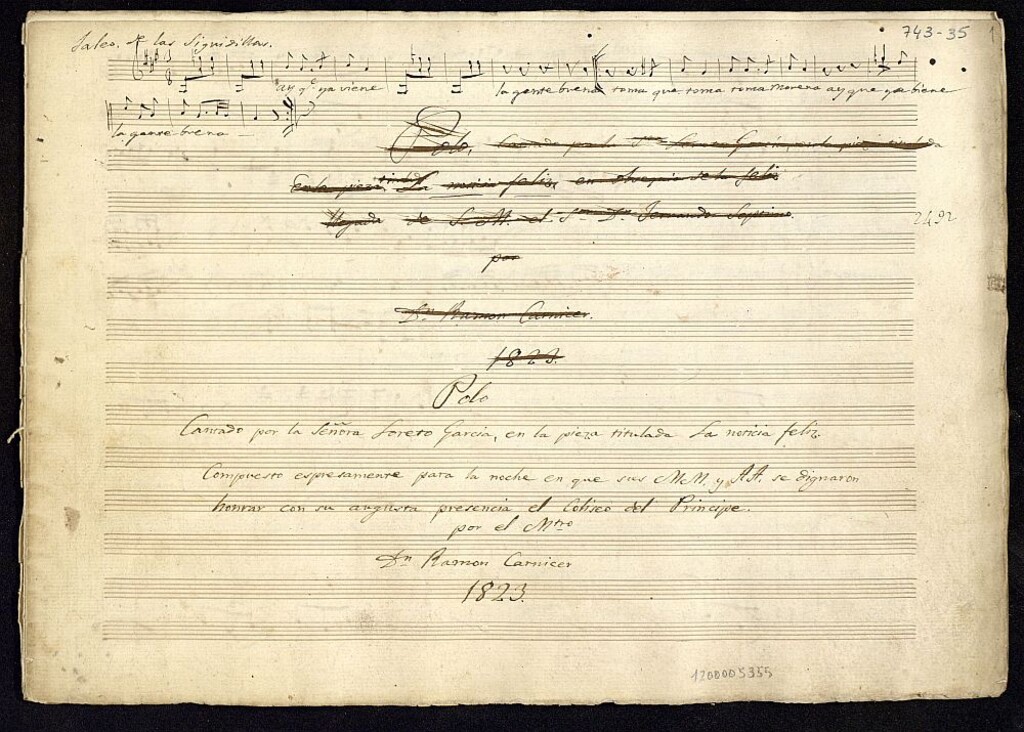 Jaleo. de las Siguidillas.
743-35
1
ay qe. ya viene
la gente buena toma que toma toma morena ay que ya biene
la gente buena
Polo, Cantado por la Sra. Loreto Garcia, en la pieza titulada
En la pieza titulada La noticia feliz, en obsequio de la feliz
llegada de S. M. el Sor. Dn. Fernando Septimo.
2492
por
Dn. Ramon Carnicer.
1823.
Polo
Cantado por la Señora Loreto Garcia, en la pieza titulada La noticia feliz.
Compuesto espresamente para la noche en que sus MM. y AA. se dignaron
honrar con su augusta presencia el Coliseo del Principe.
por el Mtro
Dn Ramon Carnicer
1823.
1200005355